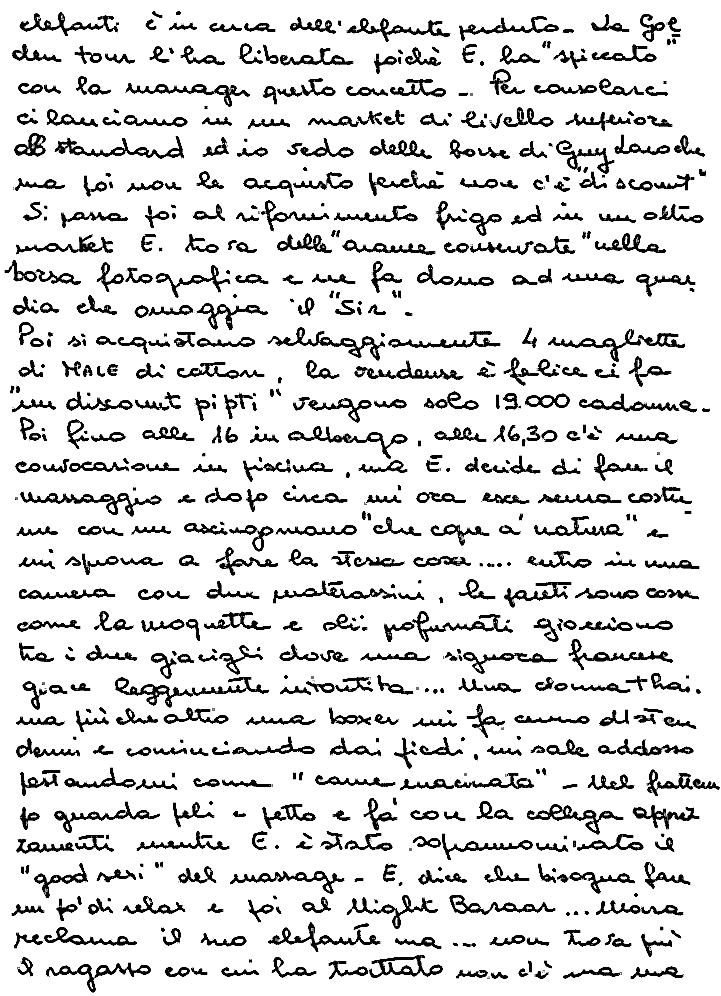 elefanti è in cerca dell'elefante perduto - La Gol
den tour l'ha liberata poichè E. ha "spiccato"
con la manager questo concetto - Per consolarci
ci lanciamo in un market di livello superiore
allo standard ed io vedo delle borse di Guy Laroche
ma poi non le acquisto perchè non c'è "discount"
Si passa poi al rifornimento frigo ed in un altro
market E. trova delle "arance conservate" nella
borsa fotografica e ne fa dono ad una guar
dia che omaggia il "Sir".
Poi si acquistano selvaggiamente 4 magliette
di MALE di cotton, la vendeuse è felice ci fa
"un discount pipti" vengono solo 19.000 cadauna -
Poi fino alle 16 in albergo, alle 16,30 c'è una
convocazione in piscina, ma E. decide di fare il
massaggio e dopo circa un'ora esce senza costu
me con un asciugamano "che copre a' natura" e
mi sprona a fare la stessa cosa .... entro in una
camera con due materassini, le pareti sono rosse
come la moquette e olii pofumati giacciono
tra i due giacigli dove una signora francese
giace leggermente intontita ... Una donna thai.
ma più che altro una boxer mi fa cenno disten
dermi e cominciando dai piedi, mi sale addosso
pestandomi come "carne macinata" - Nel frattem
po guarda peli e petto e fà con la collega apprez
zamenti mentre E. è stato soprannominato il
"good sexi" del massage - E. dice che bisogna fare
un po' di relax e poi al Night Bazaar ... Moira
reclama il suo elefante ma ... non trova più
il ragazzo con cui ha trattato non c'è ma una